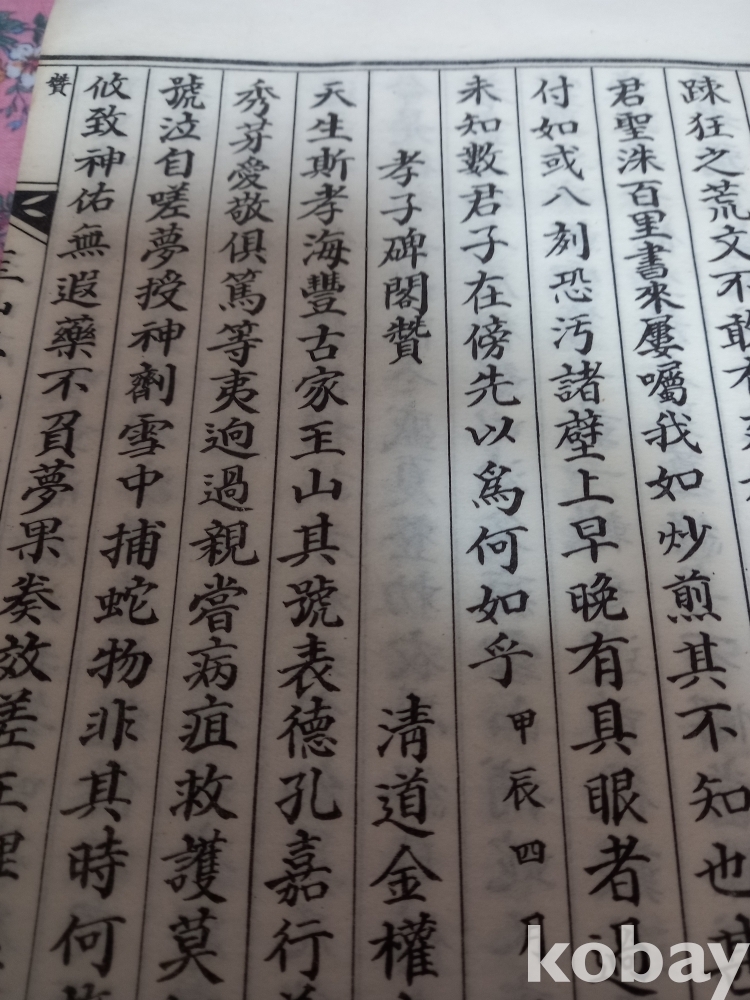 踈狂之荒文不敢
君聖洙百里書來屢囑我如炒煎其不知也
付如或入刻恐汚諸壁上早晩有具眼者過
未知數君子在傍先以爲何如乎 甲辰四月
孝子碑閣贊 淸道金權
天生斯孝海豐古家玉山其號表德孔嘉行
秀芽愛敬俱篤等夷逈過親嘗病疽救護莫
號泣自嗟夢授神劑雪中捕蛇物非其時何
攸致神佑無遐藥不負夢果奏效差王理
贊
kobay